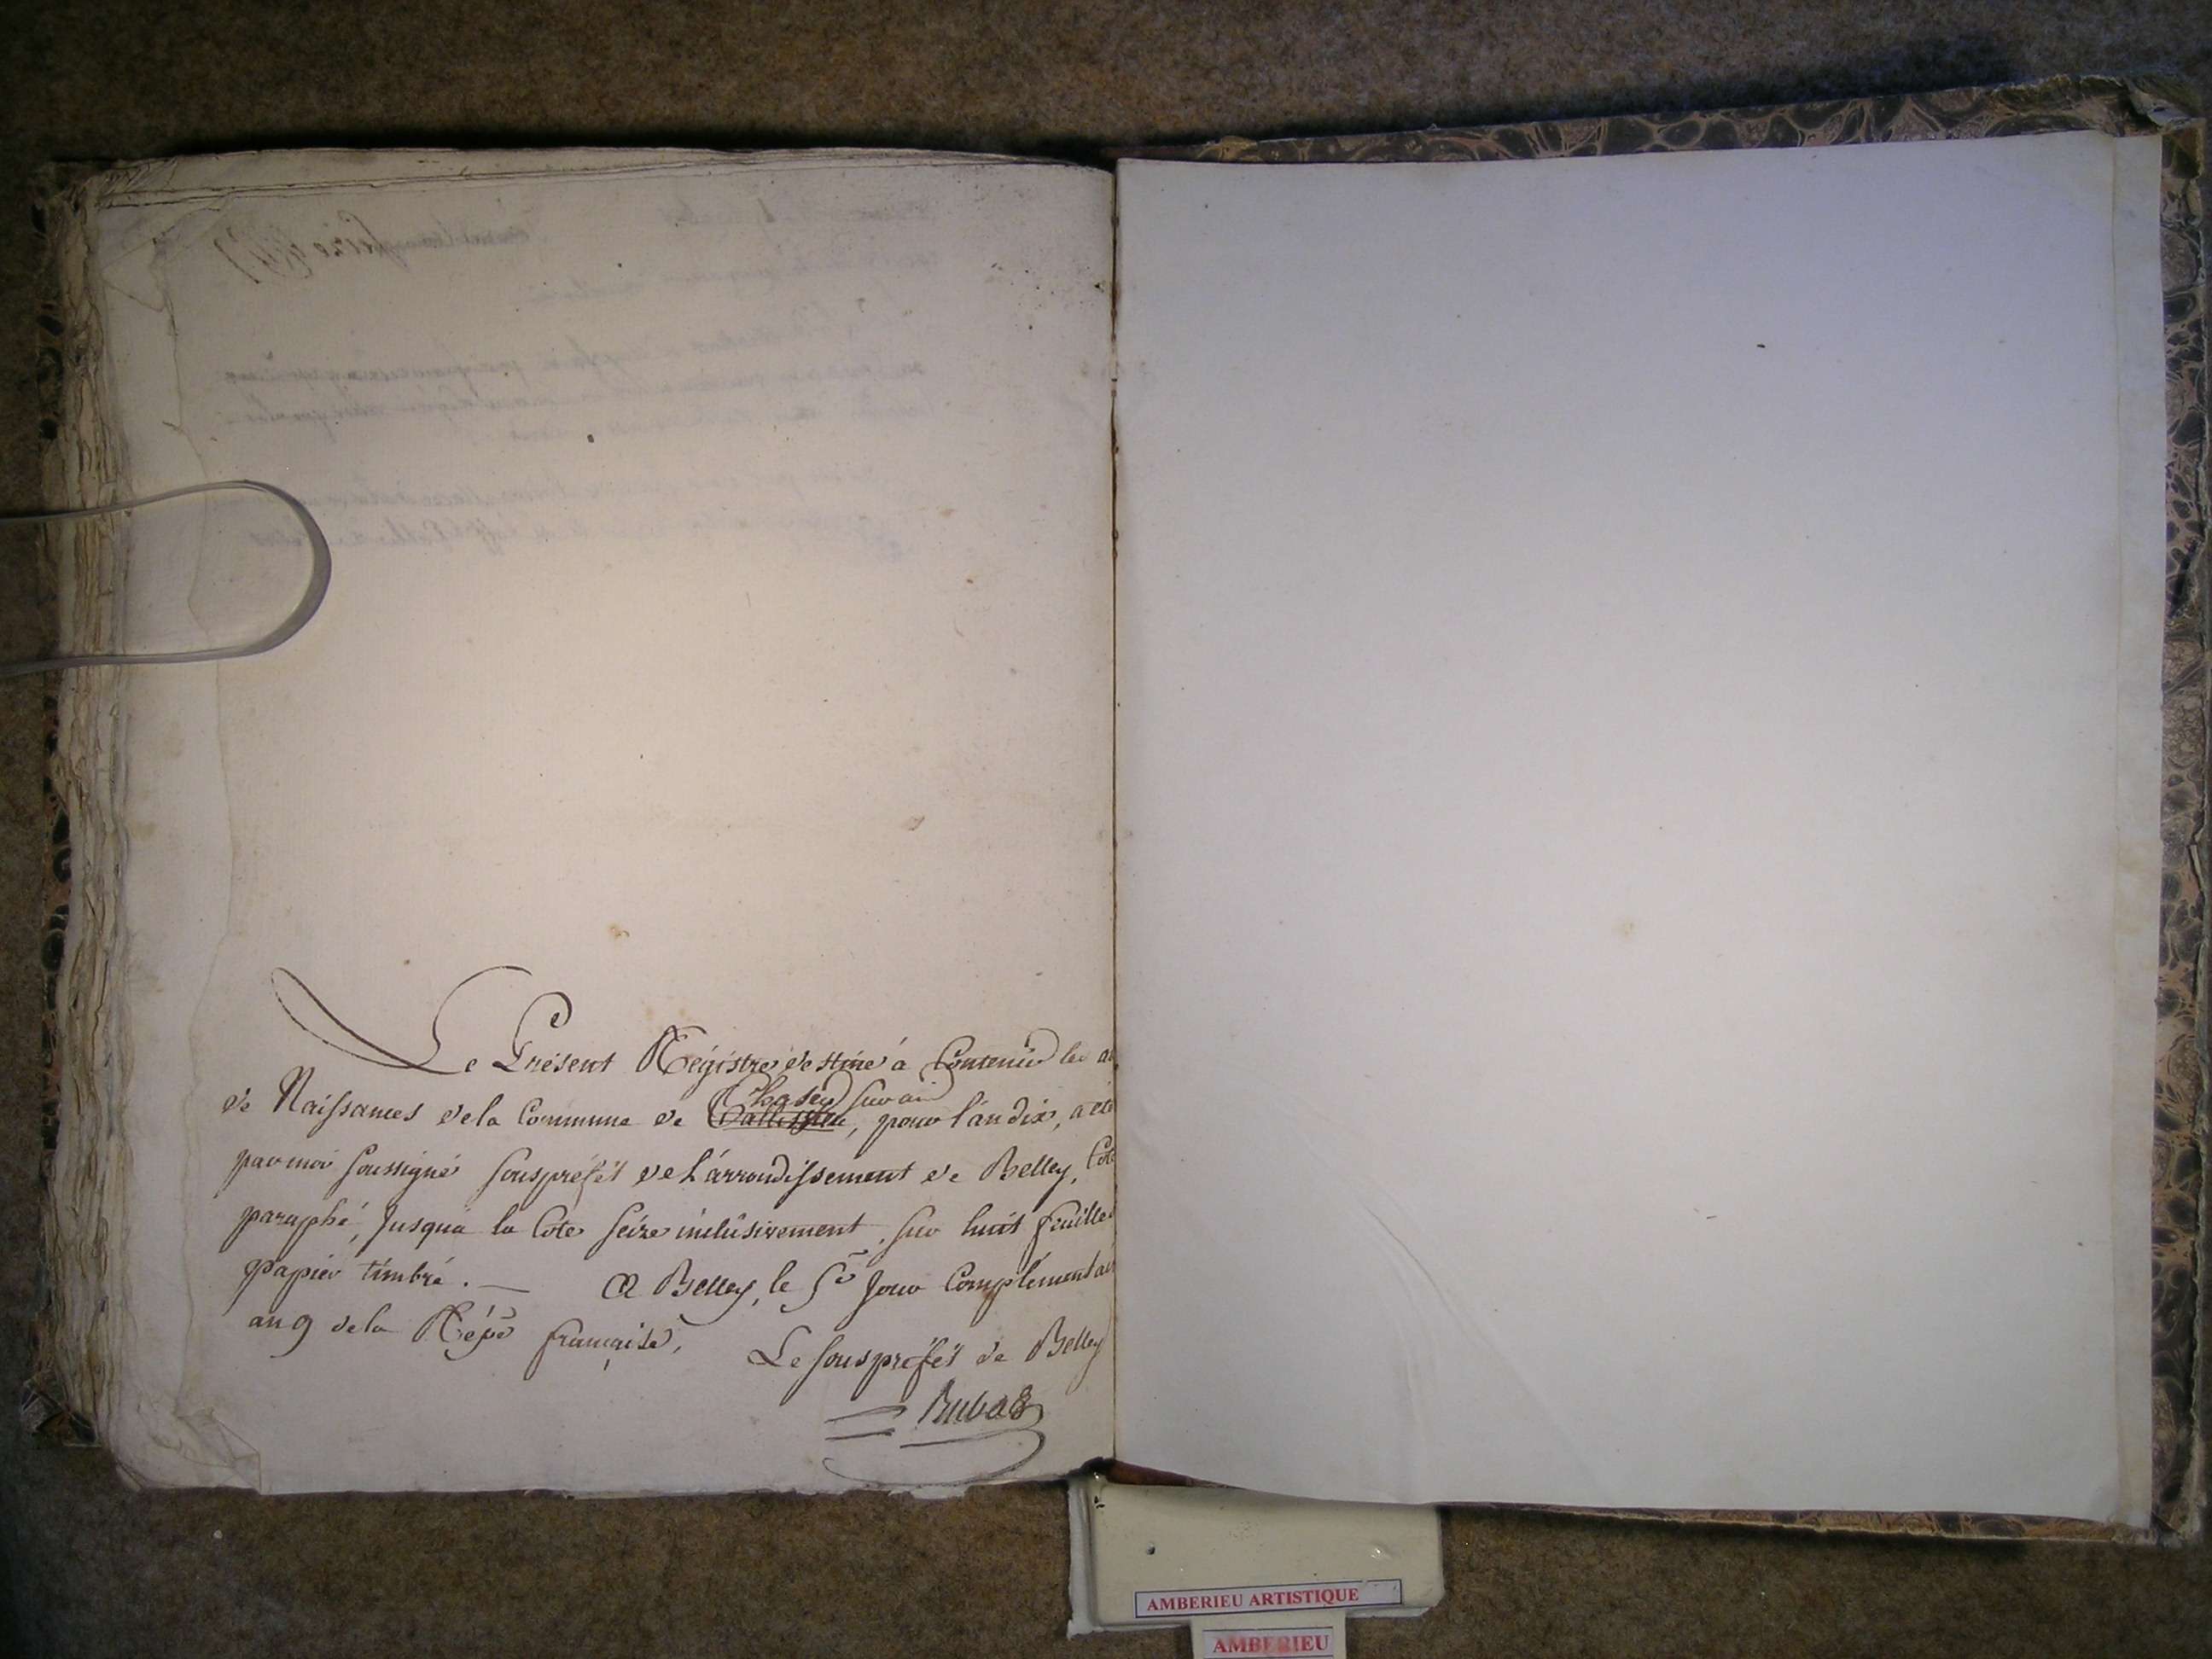 Le Présent Régistre destiné à Contenir les a
de Naissances dela Commune de Chasey sur ain, pour l'an dix, a été
par moi soussigné souspréfet de L'arrondissement de Belley, Coté
paraphé, Jusqua la Cote seize inclusivement, sur huit feuilles
papier timbré. — A Belley, le 5e Jour Complémentai
an 9 dela Répe française,
Le souspréfet de Belley
Rubat
AMBERIEU ARTISTIQUE
AMBERIEU